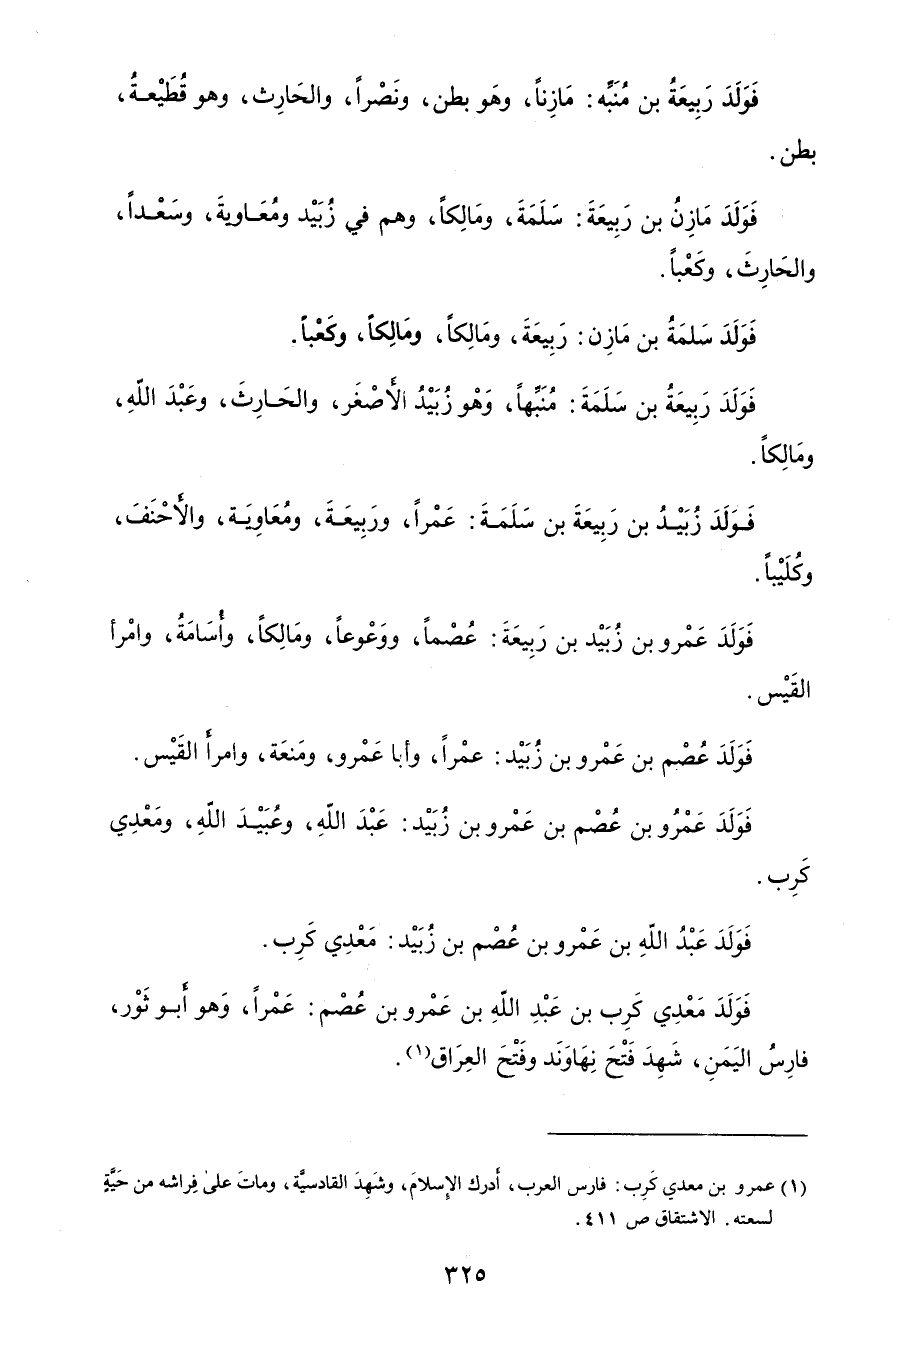 فَوَلَدَ رَبِيعَةُ بن مُنَبِّه: مَازِناً، وهَو بطن، ونَصْراً، والحَارِث، وهو قُطَيْعـةُ،
بطن.
فَوَلَدَ مَازِنُ بن رَبِيعَةَ: سَلَمَةَ، ومَالِكاً، وهم في زُبَيْد ومُعَـاويةَ، وسَعْـداً،
والحَارِثَ، وكَعْباً.
فَوَلَدَ سَلمَةُ بن مَازِن: رَبِيعَةَ، ومَالِكاً، ومَالِكاً، وكَعْباً.
فَوَلَدَ رَبِيعَةُ بن سَلَمَةَ: مُنَبِّهاً، وَهْو زُبَيْدُ الأَصْغَر، والحَـارِثَ، وعَبْدَ اللّهِ،
ومَالِكاً.
فَـوَلَدَ زُبَيْـدُ بن رَبِيعَةَ بن سَلَمَـةَ: عَمْراً، ورَبِيعَـةَ، ومُعَاوِيَـة، والأَحْنَفَ،
وكُلَيْباً.
فَوَلَدَ عَمْرو بن زُبَيْد بن رَبِيعَةَ: عُصْماً، ووَعْوعاً، ومَالِكاً، وأُسَامَةُ، وامْرأ
القَيْس.
فَوَلَدَ عُصْم بن عَمْرو بن زُبَيْد: عمْراً، وأبا عَمْرو، ومَنعَة، وامرأَ القَيْس.
فَوَلَدَ عَمْرُو بن عُصْم بن عَمْرو بن زُبَيْد: عَبْدَ اللّهِ، وعُبَيْـدَ اللّهِ، ومَعْدِي
كَرِب.
فَوَلَدَ عَبْدُ اللّهِ بن عَمْرو بن عُصْم بن زُبَيْد: مَعْدِي كَرِب.
فَوَلَدَ مَعْدِي كَرِب بن عَبْدِ اللّهِ بن عَمْرو بن عُصْم: عَمْراً، وَهو أَبـو ثَوْر،
فارِسُ اليَمَنِ، شَهِدَ فَتْحَ نِهَاوَند وفَتْحَ العِرَاق(١).
(١) عمرو بن معدي كَرِب: فارس العرب، أدرك الإِسلامَ، وشَهِدَ القادسيَّة، وماتَ علىٰ فِراشه من حَيَّةٍ
لسعته. الاشتقاق ص ٤١١.
٣٢٥